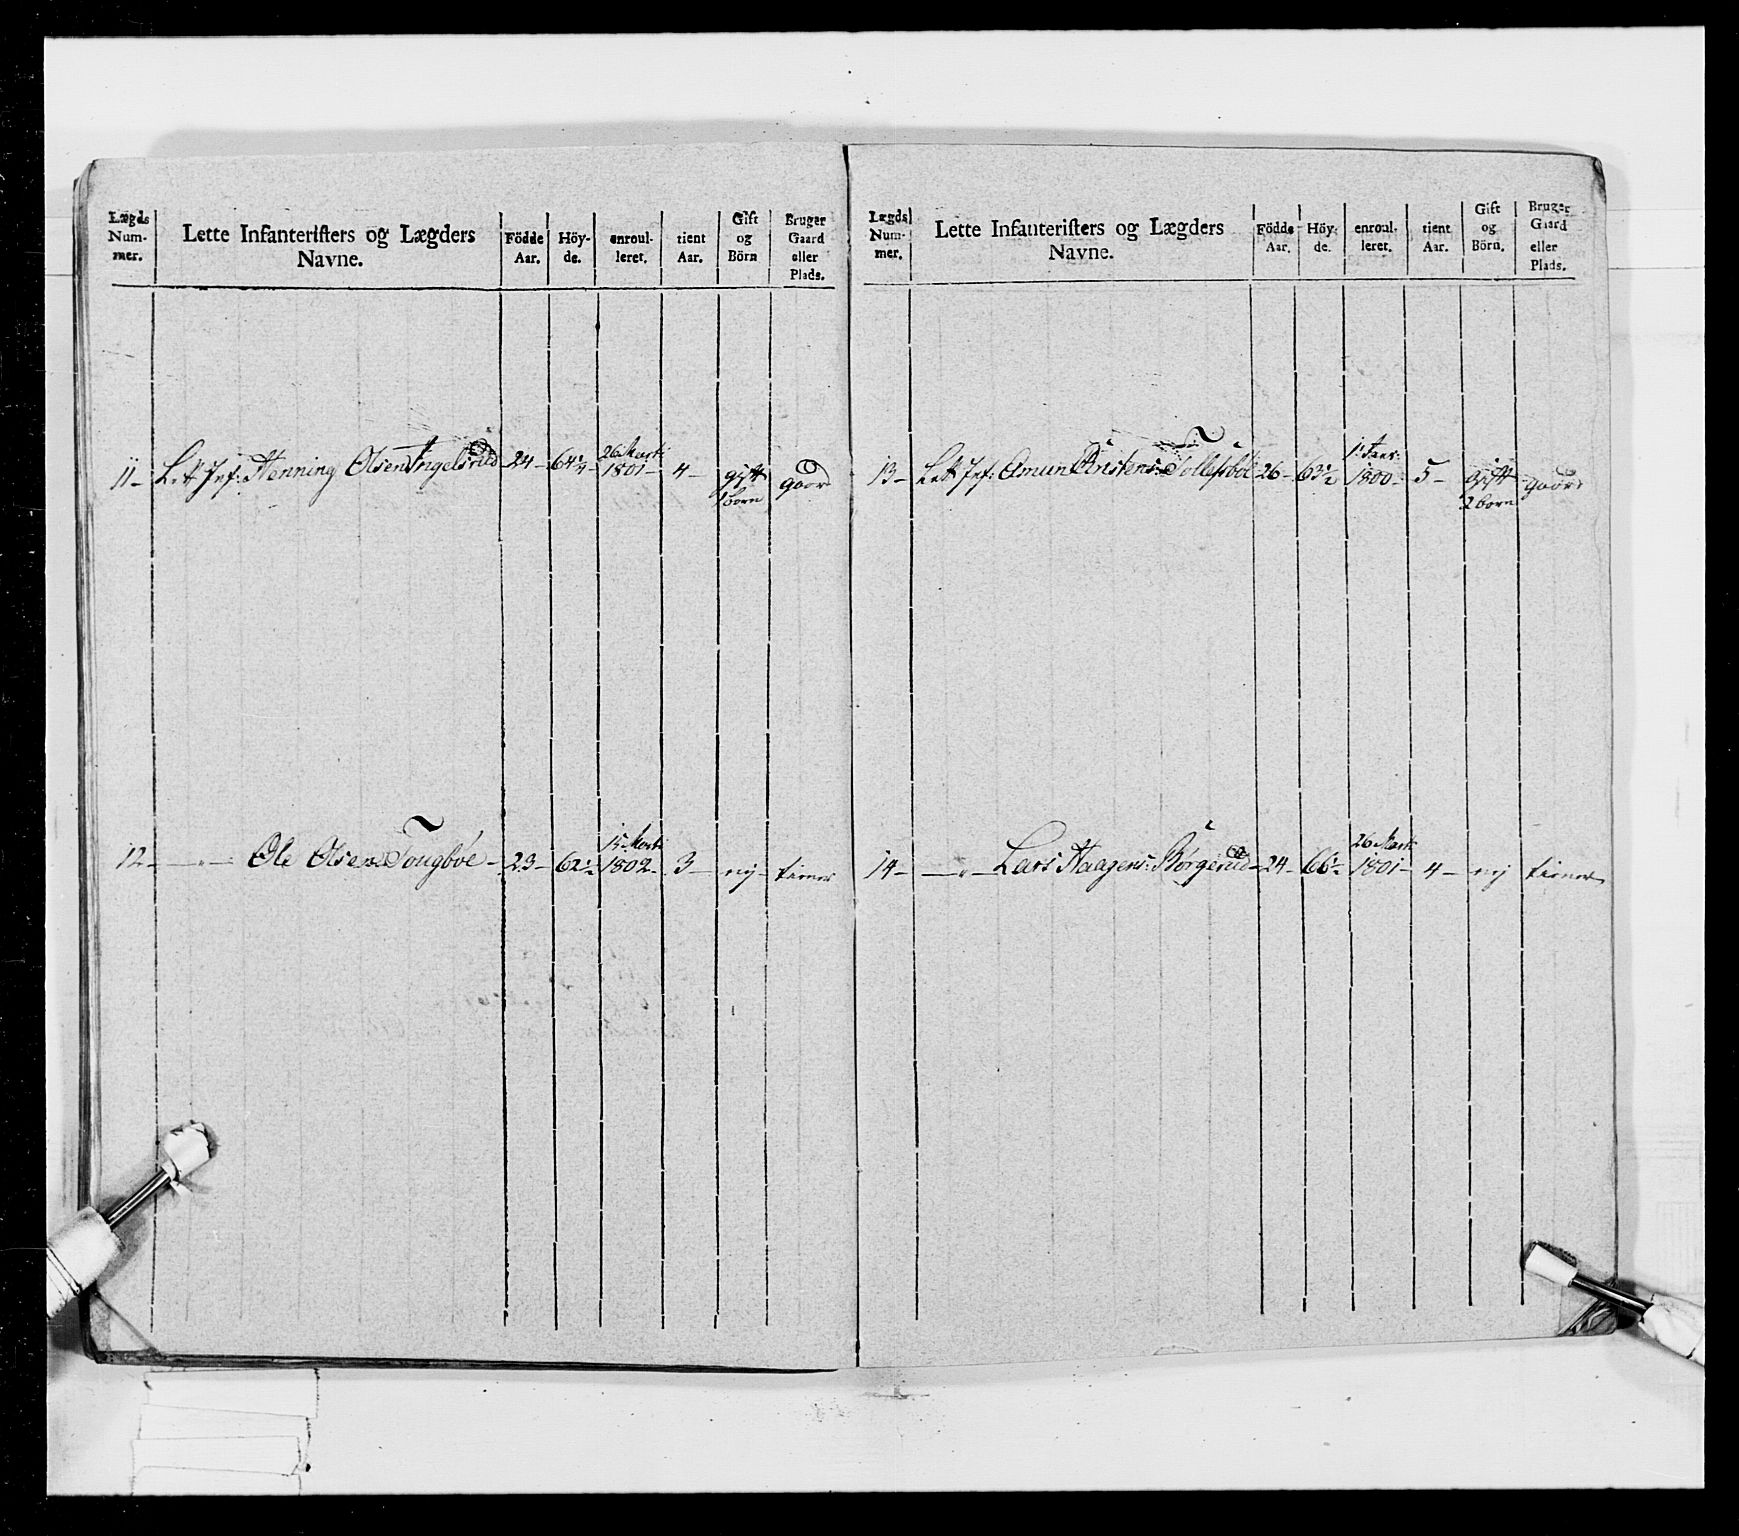 Lægds Num- mer.
Lette Infanteristers og Lægders Navne.
Födde Aar.
Höy- de.
enroul- leret.
tient Aar.
Gift og Börn
Bruger Gaard eller Plads.
11 - Lett Inf: Henning Olsen Ingelsrud - 24 - 64¼ - 26 Marti 1801 - 4 - gift 1 børn gaard
12 - — " — Ole Olsen Tougbøe - 23 - 62½ - 15 Marti 1802 - 3 - nij - tiener
Lægds Num- mer.
Lette Infanteristers og Lægders Navne.
Födde Aar.
Höy- de.
enroul- leret.
tient Aar.
Gift og Börn.
Bruger Gaard eller Plads.
13 - Lett Inf: Amun Cristens: Tollefsböl 26 - 63½ 1800 - 5 - gift 2 børn gaard
14 - — " — Lars Haagens: Børgerud - 24 - 66½ 26 Marti 1801 - 4 - nij tiener